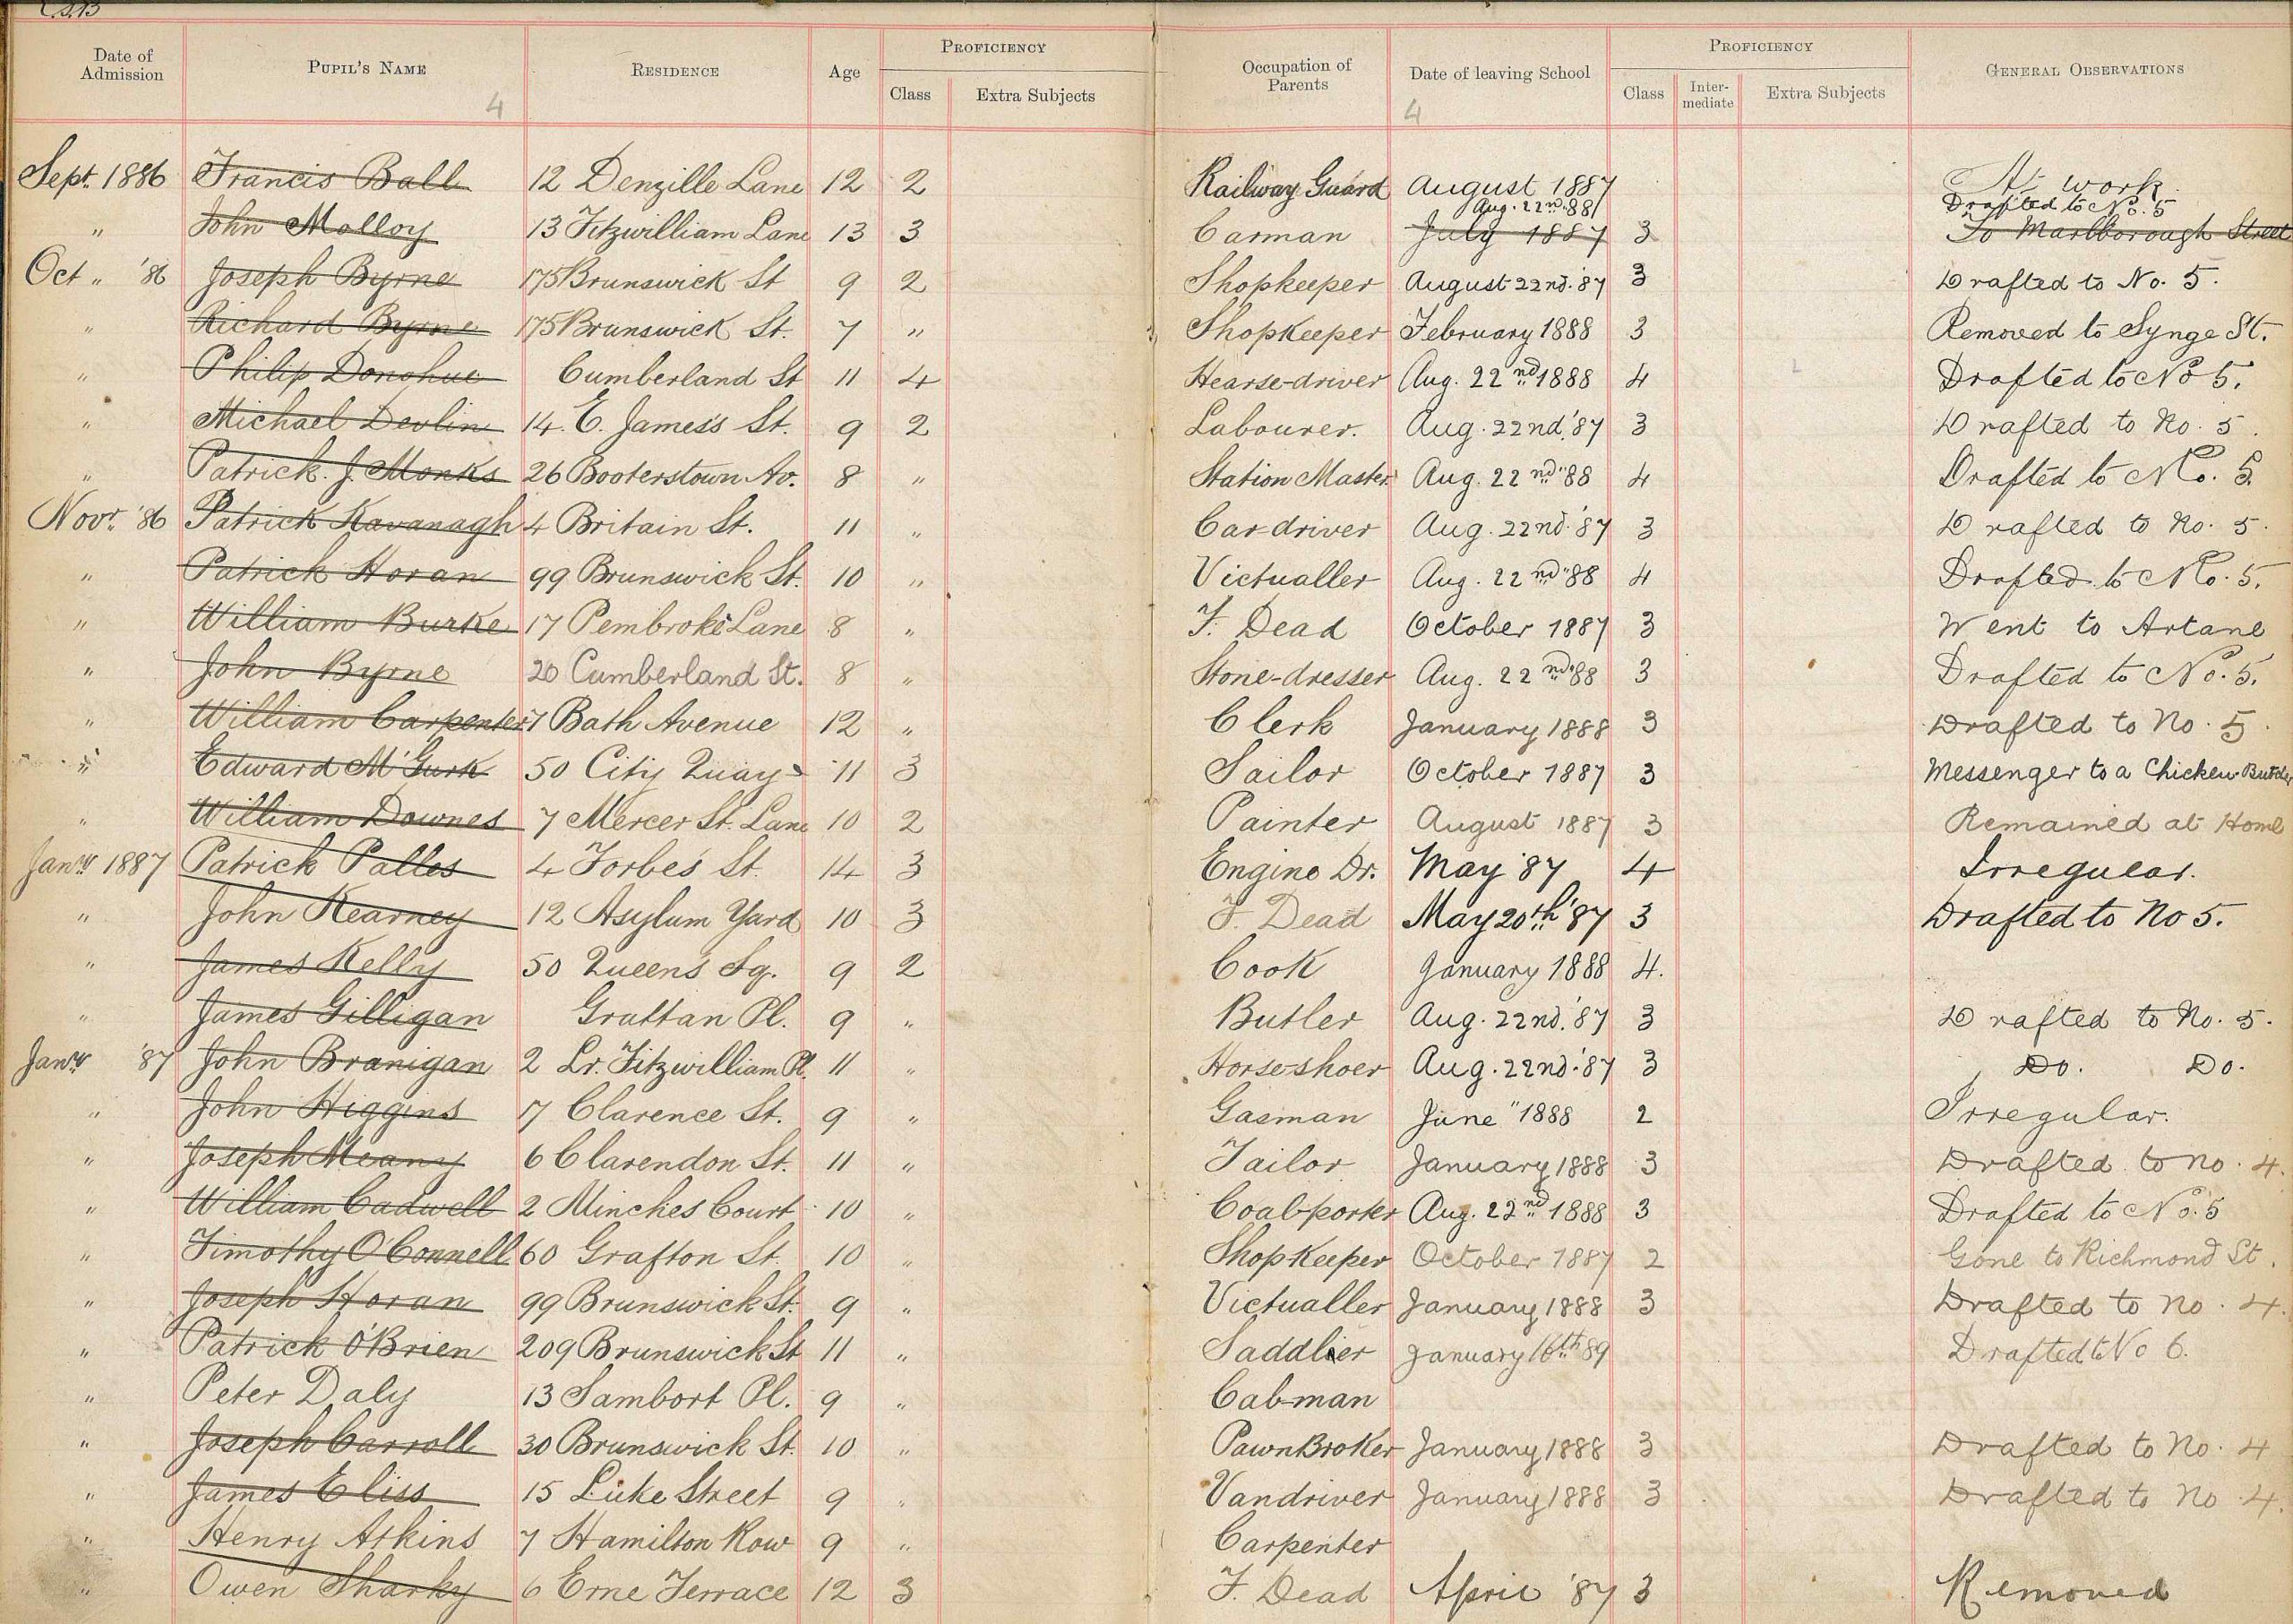 Date of Admission Pupil's Name Residence Age Proficiency Class Extra Subjects Occupation of Parents Date of leaving School Proficiency Class Inter-mediate Extra Subjects General Observations
4 4
Sept. 1886 Francis Ball 12 Denzille Lane 12 2 Railway Guard August 1887 At work
Aug. 22nd. 88 Drafted to No. 5
" John Molloy 13 Fitzwilliam Lane 13 3 Carman July 1887 3 To Marlborough Street
Oct " '86 Joseph Byrne 175 Brunswick St 9 2 Shopkeeper August 22nd. '87 3 Drafted to No. 5.
" Richard Byrne 175 Brunswick St. 7 " Shopkeeper February 1888 3 Removed to Synge St.
" Philip Donohue Cumberland St 11 4 Hearse-driver Aug. 22nd 1888 4 Drafted to No 5.
" Michael Devlin 14. E. James's St. 9 2 Labourer. Aug. 22nd. '87 3 Drafted to No. 5.
" Patrick. J. Monks 26 Booterstown Av. 8 " Station Master Aug. 22nd '88 4 Drafted to No. 5
Novr. '86 Patrick Kavanagh 4 Britain St. 11 " Car-driver Aug. 22nd. '87 3 Drafted to No. 5.
" Patrick Horan 99 Brunswick St. 10 " Victualler Aug. 22nd '88 4 Drafted to No. 5.
" William Burke 17 Pembroke Lane 8 " F. Dead October 1887 3 Went to Artane
" John Byrne 20 Cumberland St. 8 " Stone-dresser Aug. 22nd '88 3 Drafted to No. 5.
" William Carpenter 7 Bath Avenue 12 " Clerk January 1888 3 Drafted to No. 5.
" Edward McGurk 50 City Quay 11 3 Sailor October 1887 3 Messenger to a Chicken-Butcher
" William Downes 7 Mercer St. Lane 10 2 Painter August 1887 3 Remained at Home
Jany 1887 Patrick Palles 4 Forbes St. 14 3 Engine Dr. May '87 4 Irregular.
" John Kearney 12 Asylum Yard 10 3 F. Dead May 20th '87 3 Drafted to No 5.
" James Kelly 50 Queen's Sq. 9 2 Cook January 1888 4.
" James Gilligan Grattan Pl. 9 " Butler Aug. 22nd. '87 3 Drafted to No. 5.
Jany '87 John Branigan 2 Lr. Fitzwilliam Pl. 11 " Horse-shoer Aug. 22nd. '87 3 Do. Do.
" John Higgins 7 Clarence St. 9 " Gasman June " 1888 2 Irregular.
" Joseph Meany 6 Clarendon St. 11 " Tailor January 1888 3 Drafted to no. 4.
" William Cadwell 2 Minches Court 10 " Coal-porter Aug. 22nd 1888 3 Drafted to No. 5
" Timothy O'Connell 60 Grafton St. 10 " Shopkeeper October 1887 2 Gone to Richmond St.
" Joseph Horan 99 Brunswick St. 9 " Victualler January 1888 3 Drafted to no. 4.
" Patrick O'Brien 209 Brunswick St 11 " Saddler January 16th 89 Drafted to No 6.
" Peter Daly 13 Sambort Pl. 9 " Cab-man
" Joseph Carroll 30 Brunswick St. 10 " PawnBroker January 1888 3 Drafted to No. 4
" James Eliss 15 Luke Street 9 " Vandriver January 1888 3 Drafted to no. 4.
" Henry Atkins 7 Hamilton Row 9 " Carpenter
" Owen Sharky 6 Erne Terrace 12 3 F. Dead April '87 3 Removed